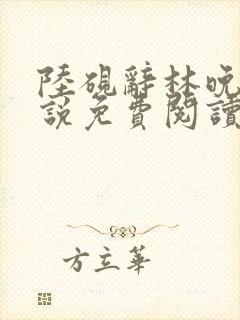 陸硯辭林晚
說免費閱讀
方立華